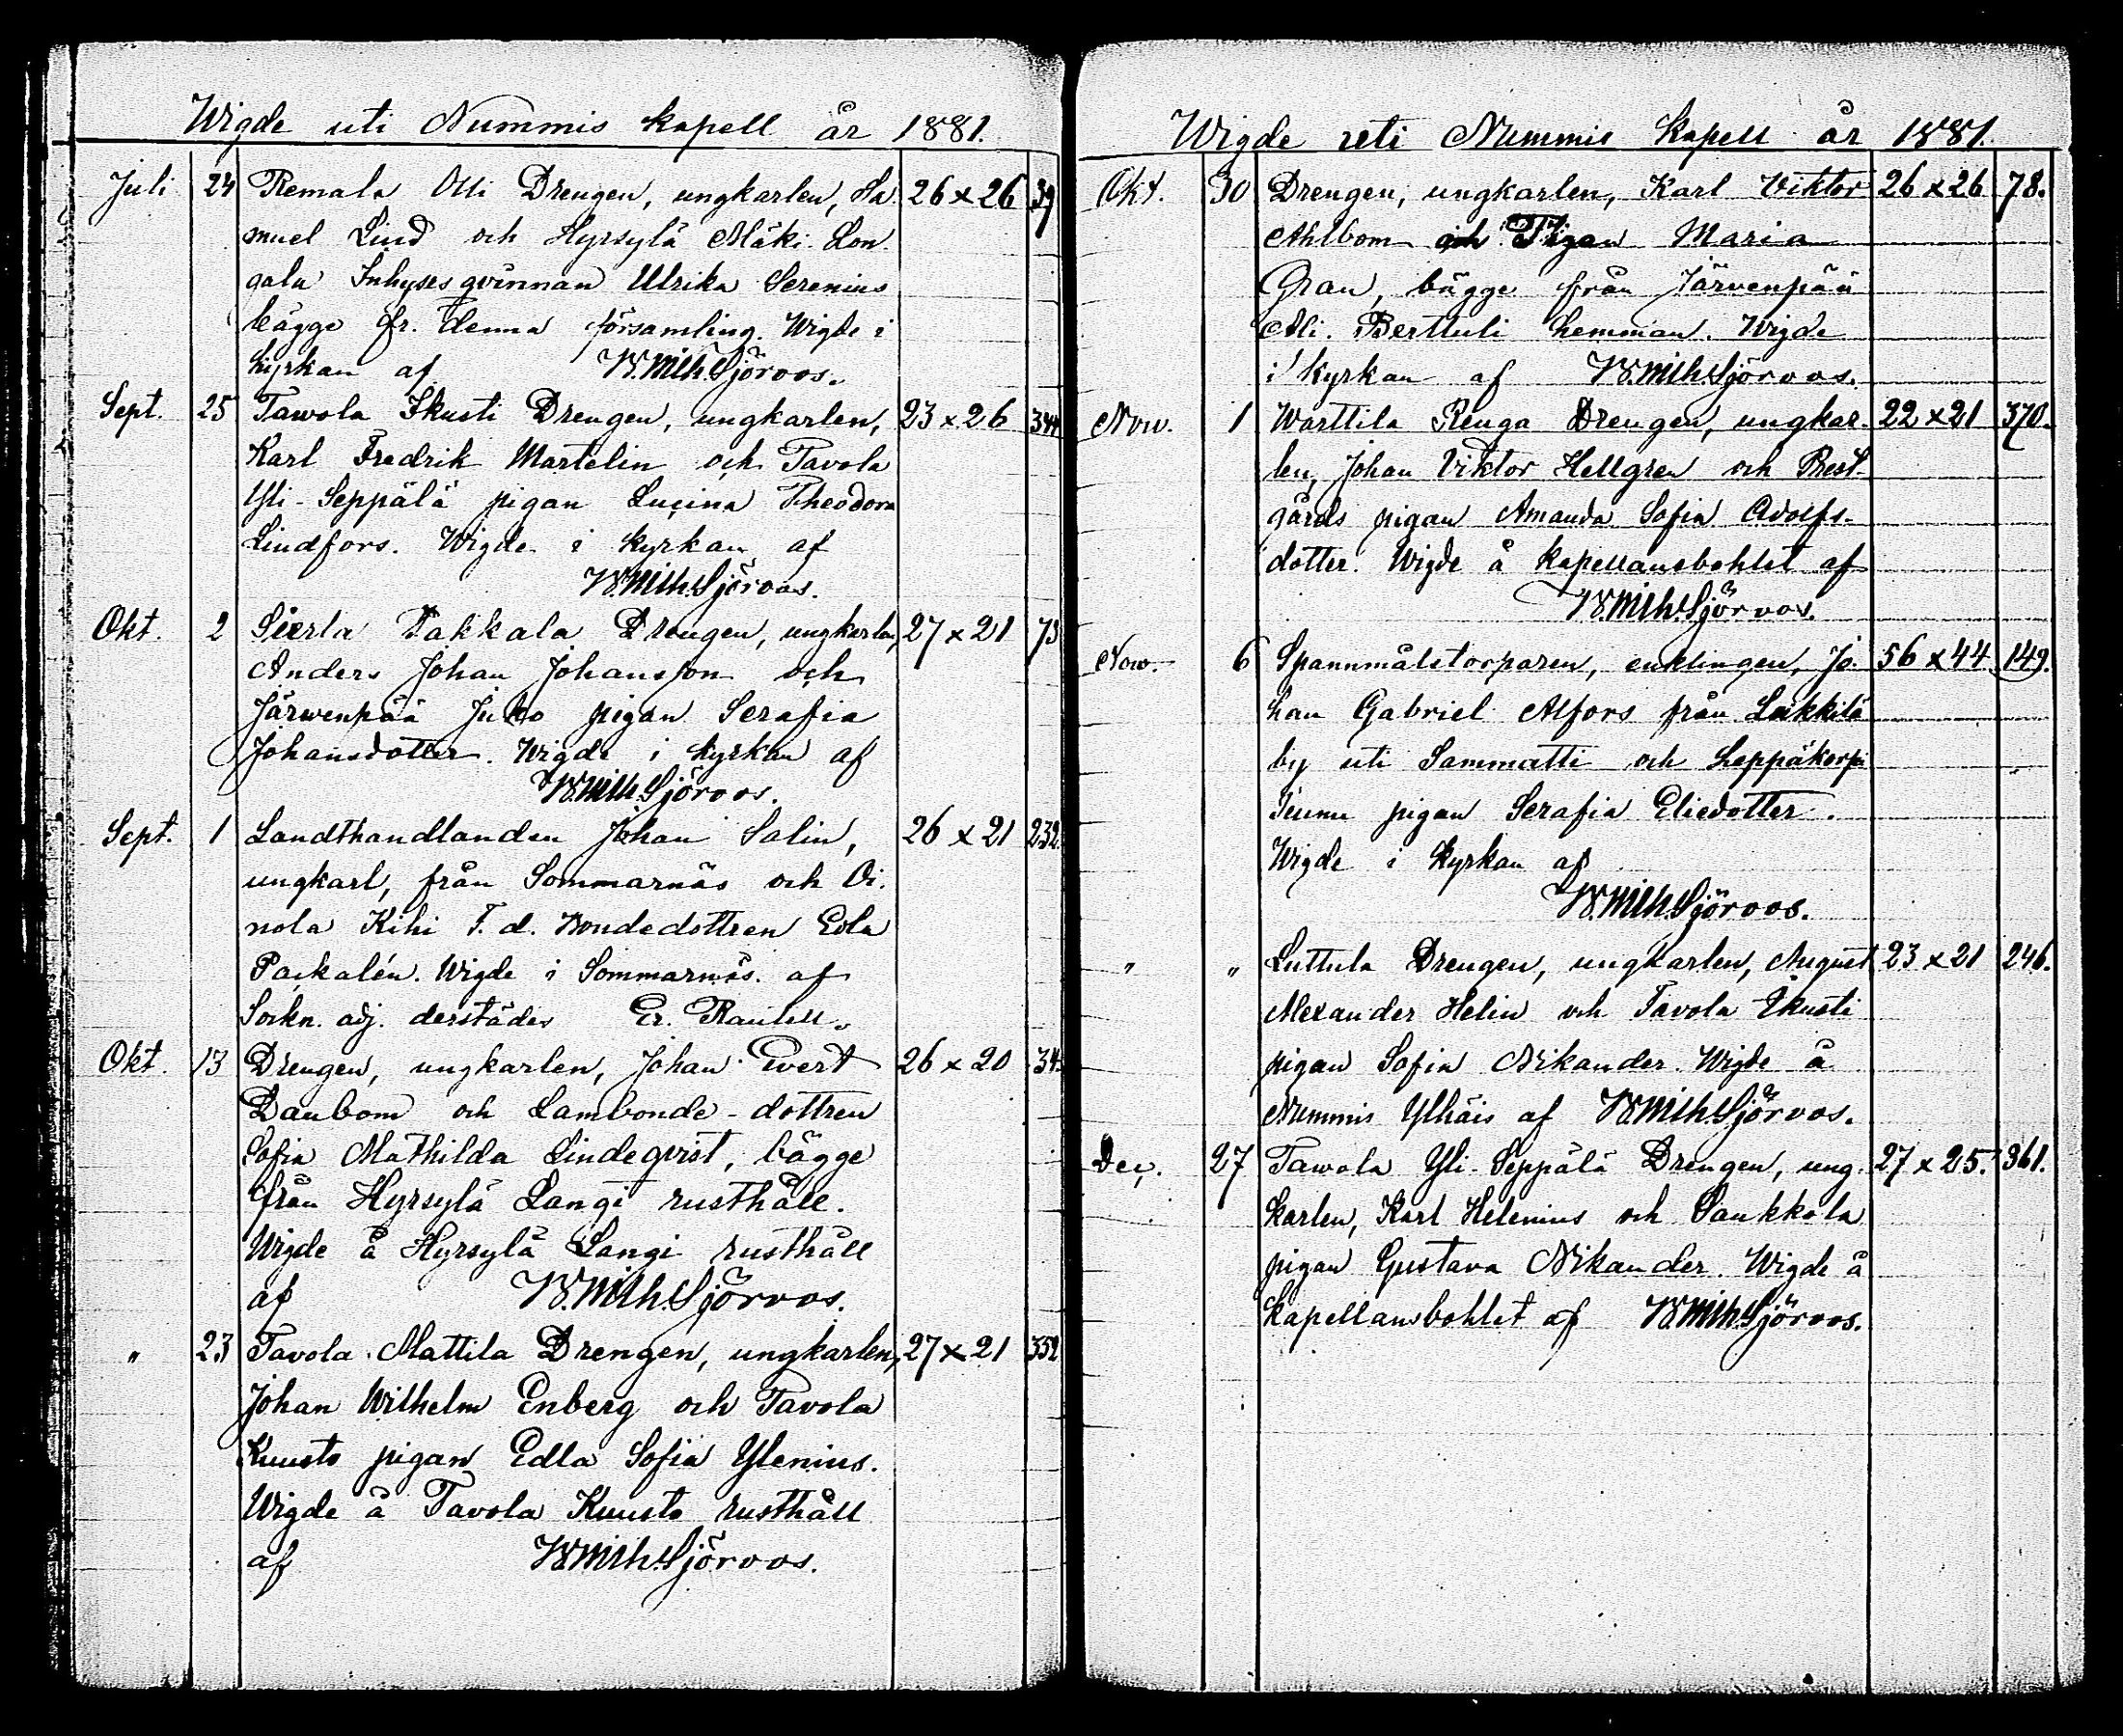 Wigde uti Nummis kapell år 1881.
Juli 24 Remala Olli Drengen, ungkarlen, Sa 26 x 26 39
muel Lind och Hyrsylä Mäki Lon
gala Inhyses qvinnan Ulrika Serenius
bägge fr. denna församling. Wigde i
kyrkan af Wilh. Sjöroos.
Sept. 25 Tawola Skusti Drengen, ungkarlen, 23 x 26 344
Karl Fredrik Martelin och Tavola
Yli-Seppälä pigan Lucina Theodora
Lindfors. Wigde i kyrkan af
Wilh. Sjöroos.
Okt. 2 Sierla Pakkala Drengen, ungkarlen, 27 x 21 73
Anders Johan Johansson och
Järwenpää Juko pigan Serafia
Johansdotter. Wigde i kyrkan af
Wilh. Sjöroos.
Sept. 1 Landthandlanden Johan Salin, 26 x 21 232.
ungkarl, från Sommarnäs och Oi.
nola Kihi F. d. Bondedottren Eola
Packalén. Wigde i Sommarnäs. af
Sockn. adj. derstädes Er.
Okt. 13 Drengen, ungkarlen, Johan Evert 26 x 20 34.
Danbom och Lambonde-dottren
Sofia Mathilda Lindeqvist, bägge
från Hyrsylä Langi rusthåll.
Wigde å Hyrsylä Langi rusthåll
af Wilh. Sjöroos.
" 23 Tavola Mattila Drengen, ungkarlen, 27 x 21 352
Johan Wilhelm Enberg och Tavola
Kuusto pigan Edla Sofia Ylenius.
Wigde å Tavola Kuusto rusthåll
af Wilh. Sjöroos.
Wigde uti Nummis Kapell år 1881.
Okt. 30 Drengen, ungkarlen, Karl Viktor 26 x 26 78.
Ahlbom och Pigan Maria
Gran, bägge från Järvenpää
Ali. Berttuli hemman. Wigde
i kyrkan af Wilh. Sjöroos.
Now. 1 Warttila Renga Drengen, ungkar- 22 x 21 370.
len, Johan Viktor Hellgren och Prest-
gårds pigan Amanda Sofia Adolfs-
dotter. Wigde å kapellansbohlet af
Wilh. Sjöroos.
Now. 6 Spannmålstorparen, enklingen, Jo- 56 x 44 149.
han Gabriel Alfors från Lukkila
by uti Sammatti och Leppäkorpi
pigan Serafia Eliedotter.
Wigde i kyrkan af
Wilh. Sjöroos.
" " Luttula Drengen, ungkarlen, August 23 x 21 246.
Alexander Helin och Tavola Skusti
pigan Sofia Nikander. Wigde å
Nummis Ylhäis af Wilh. Sjöroos.
Dec. 27 Tawola Yli-Seppälä Drengen, ung- 27 x 25. 361.
karlen, Karl Helenius och Paukkola
pigan Gustava Nikander. Wigde å
kapellansbohlet af Wilh. Sjöroos.